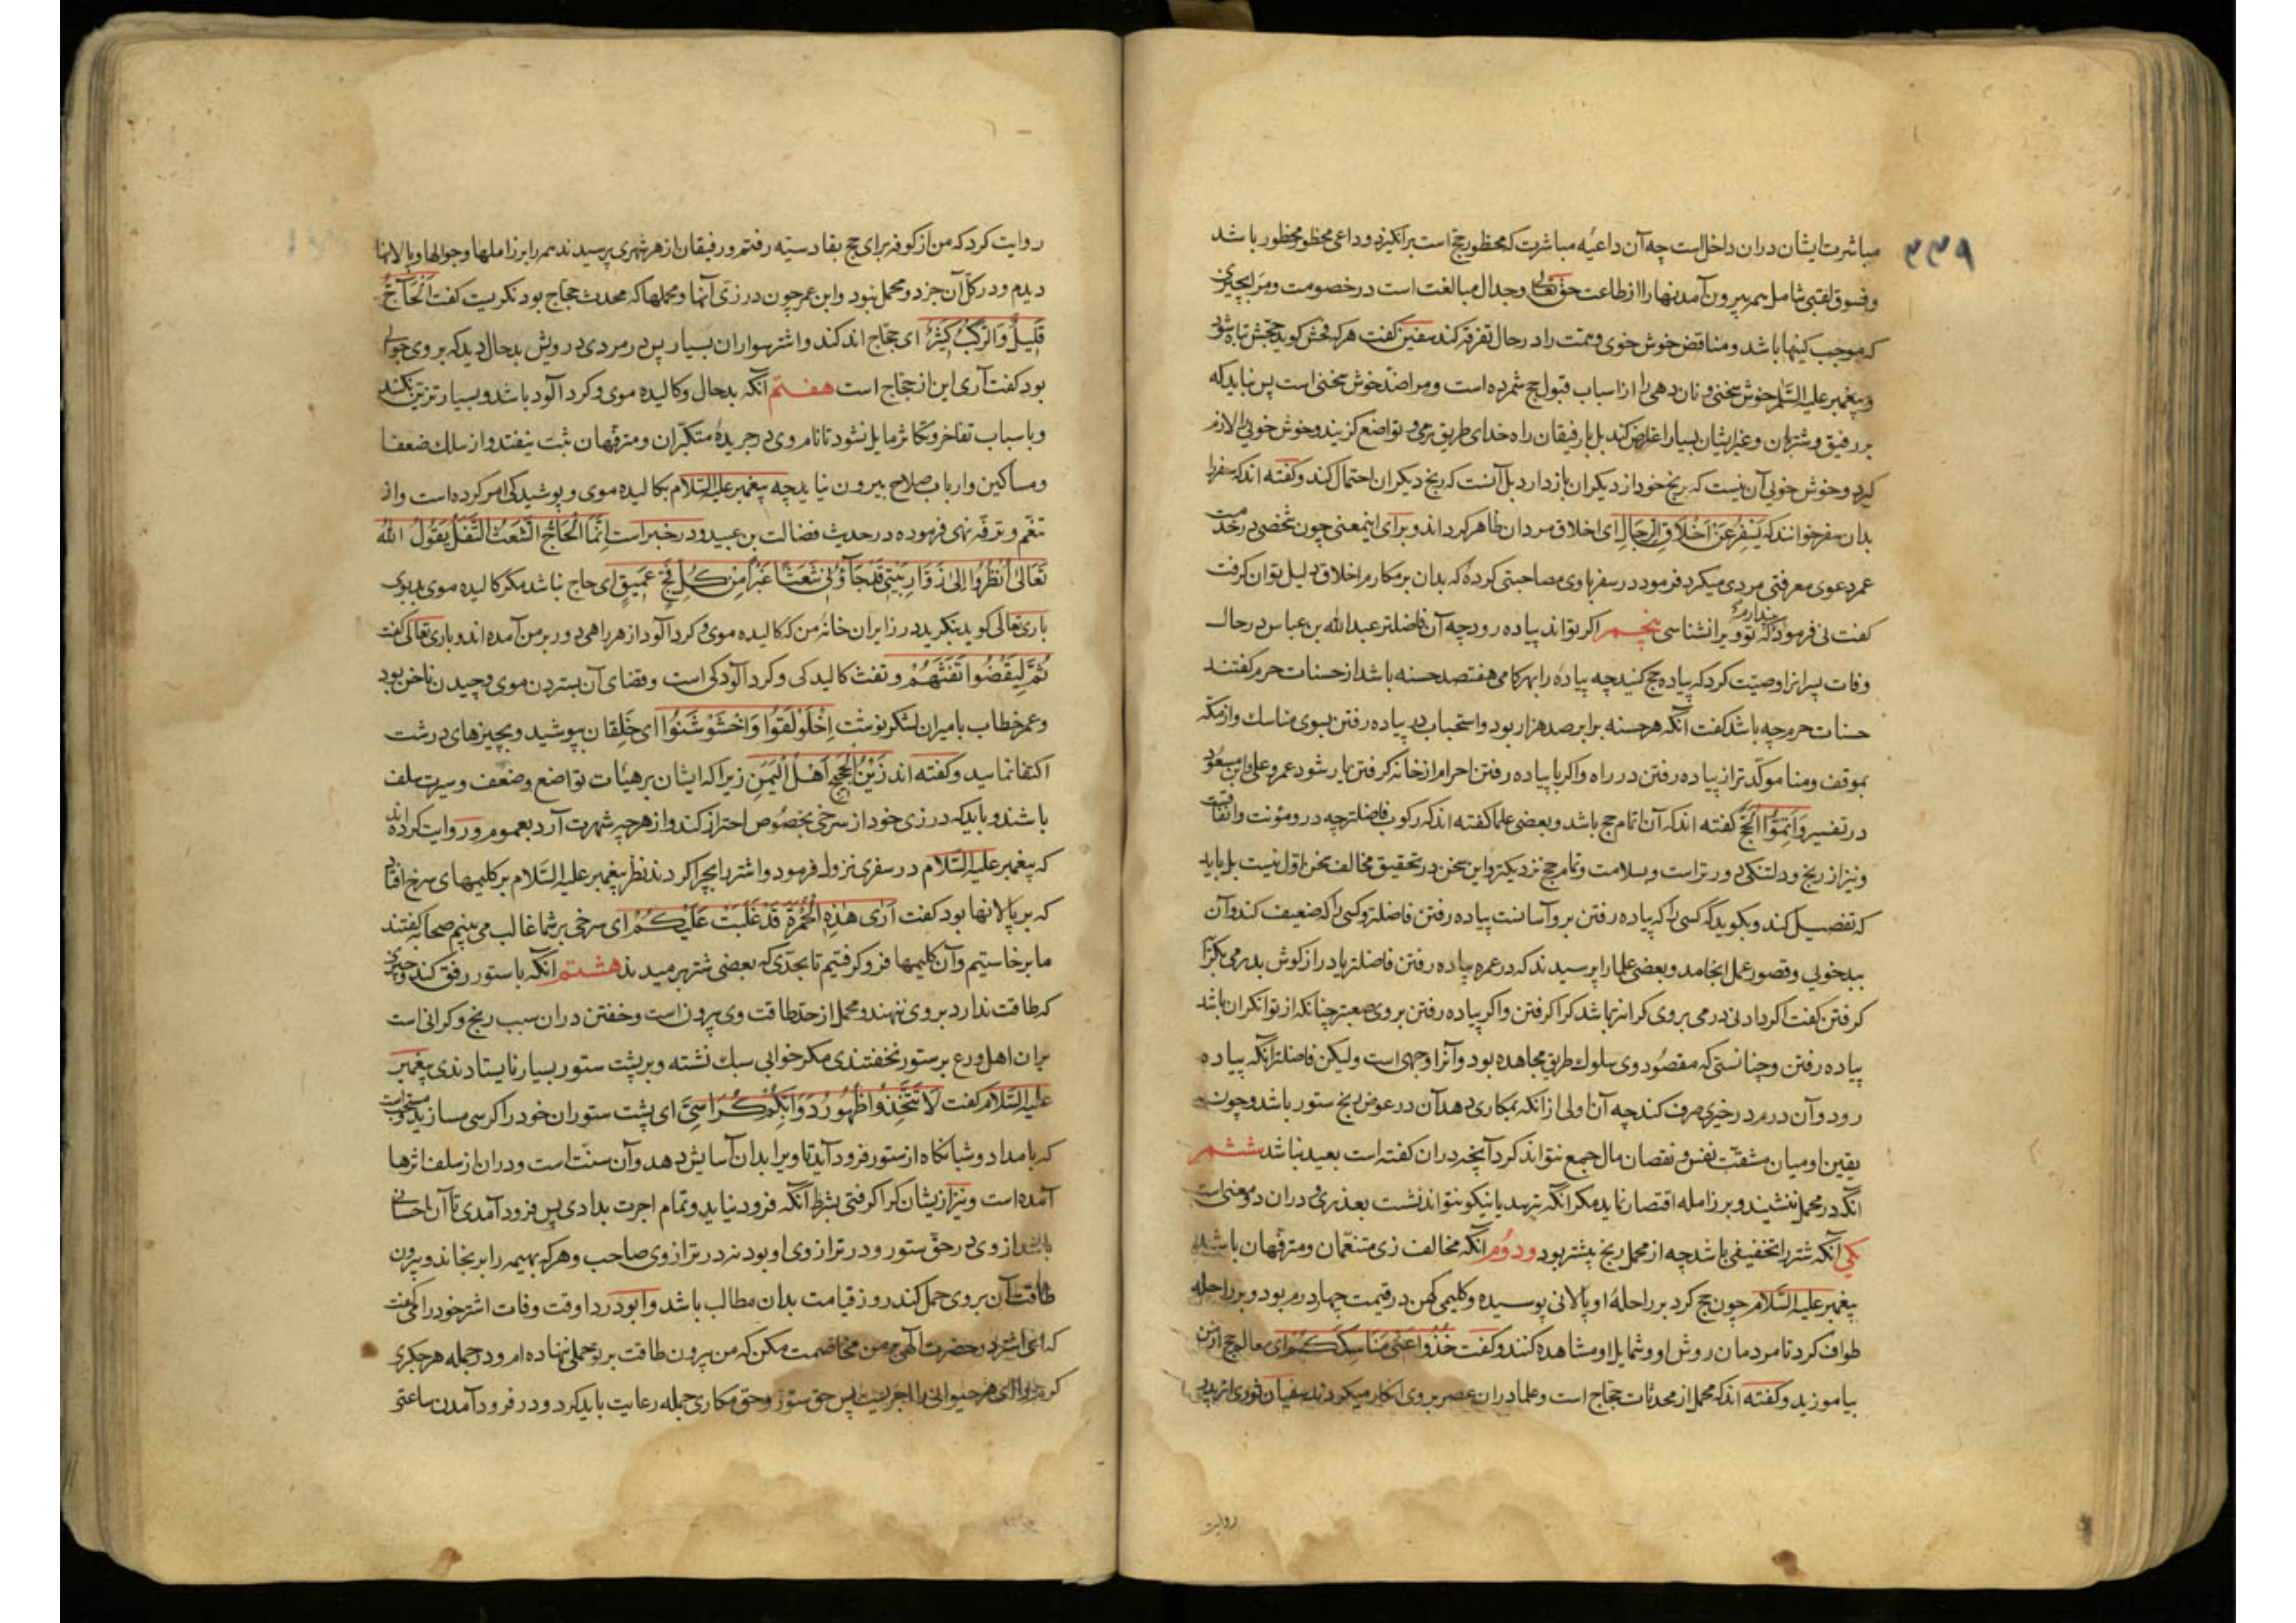 ۳۳۹
مباشرت ایشان دران داخل است چه آن داعیه مباشرت که محظور حج است برانگیزد و داعی محظور محظور باشد
و فسوق لقبی شامل همه بیرون آمدنها را از طاعت حق تعالی و جدال مبالغت است در خصومت و مرا بچیزی
که موجب کینها باشد و مناقض خوش خوی و همت را در حال تفرقه کند سفین کفت هر که فحش کوید حجش تباه شود
و پیغمبر علیه السلام خوش سخنی و نان دهی را از اسباب قبول حج شمرده است و مرا ضد خوش سخنی است پس نباید که
بر رفیق و شتربان و غیر ایشان بسیار اعتراض کند بل با رفیقان راه خدای طریق نرمی و تواضع کزیند و خوش خویی را لازم
کیرد و خوش خویی آن نیست که رنج خود از دیکران بازدارد بل آنست که رنج دیکران احتمال کند و کفته اند که سفر را
بدان سفر خوانند که یَسْفِرُ عَنْ اَخْلَاقِ الرِّجَالِ ای اخلاق مردان ظاهر کرداند و برای اینمعنی چون شخصی در خدمت
عمر دعوی معرفتی مردی میکرد فرمود در سفر با وی مصاحبتی کردهٔ که بدان بر مکارم اخلاق دلیل توان کرفت
کفت نی فرمود پندارم که تو ویرا نشناسی پنجم اکر تواند پیاده رود چه آن فاضلتر عبد الله بن عباس در حال
وفات پسرانرا وصیّت کرد که پیاده حج کنید چه پیاده را بهر کامی هفتصد حسنه باشد از حسنات حرم کفتند
حسنات حرم چه باشد کفت آنکه هر حسنه برابر صد هزار بود و استحباب در پیاده رفتن بسوی مناسک و از مکه
بموقف و منا موکّدتر از پیاده رفتن در راه و اکر با پیاده رفتن احرام از خانه کرفتن یار شود عمر و علی و ابن مسعود
در تفسیر وَاَتِمُّوا الْحَجَّ کفته اند که آن اتمام حج باشد و بعضی علما کفته اند که رکوب فاضلتر چه درو مؤنت و انفاقست
و نیز از رنج و دلتنکی دورتر است و بسلامت و تمام حج نزدیکتر و این سخن در تحقیق مخالف سخن اول نیست بل باید
که تفصیل کند و بکوید که کسی را که پیاده رفتن بر و آسانست پیاده رفتن فاضلتر و کسی را که ضعیف کند و آن
ببدخویی و قصور عمل انجامد و بعضی علما را پرسیدند که در عمره پیاده رفتن فاضلتر یا دراز کوش بدرمی بکرا
کرفتن کفت اکر دادنی درمی بر وی کرانتر باشد کرا کرفتن و اکر پیاده رفتن بر وی صعبتر چنانکه از توانکران باشد
پیاده رفتن و چنانستی که مقصود وی سلوک طریق مجاهده بود و آنرا وجهی است ولیکن فاضلتر آنکه پیاده
رود و آن درم در خیری صرف کند چه آن اولی از آنکه بمکاری دهد آن در عوض رنج ستور باشد و چون
یقین او میان مشقّت نفس و نقصان مال جمع نتواند کرد آنچه دران کفته است بعید نباشد ششم
انکه در محمل ننشیند و بر زامله اقتصار نماید مکر انکه بترسد یا نیکو نتواند نشست بعذری و دران دو معنی است
یکی آنکه شتر را تخفیفی باشد چه از محمل رنج بیشتر بود و دوم انکه مخالف زی متنعّمان و مترفّهان باشد
پیغمبر علیه السّلام چون حج کرد بر راحلهٔ او پالانی پوسیده و کلیمی کهن در قیمت چهار درم بود و بر راحله
طواف کرد تا مردمان روش او و شمایل او مشاهده کنند و کفت خُذُوا عَنِّی مَنَاسِکَکُمْ ای معالم حج از من
بیاموزید و کفته اند که محمل از محدثات حجّاج است و علما دران عصر بر وی انکار میکردند سفیان ثوری از پدر
روایت
روایت کرد که من از کوفه برای حج بقادسیّه رفتم و رفیقان از هر شهری برسیدند همه را بر زاملها و جوالها و پالانها
دیدم و در کل آن جز دو محمل نبود و ابن عمر چون در زی آنها و محملها که محدث حجاج بود نکریست کفت اَلْحَاجُّ
قَلِیلٌ وَالرَّکْبُ کَثِیرٌ ای حجّاج اندکند و اشترسواران بسیار پس در مردی درویش بدحال دید که بر وی جوالی
بود کفت آری این از حجّاج است هفتم آنکه بدحال و کالیده موی و کرد آلود باشد و بسیار تزیّن نکند
و باسباب تفاخر و تکاثر مایل نشود تا نام وی در جریدهٔ متکبّران و مترفّهان ثبت نیفتد و از سلک ضعفا
و مساکین و ارباب صلاح بیرون نیاید چه پیغمبر علیه السّلام بکالیده موی و پوشیدکی امر کرده است و از
تنعّم و ترفّه نهی فرموده در حدیث فضالت بن عبید و در خبر است اِنَّمَا الْحَاجُّ الشَّعِثُ التَّفِلُ یَقُولُ اللهُ
تَعَالٰی اُنْظُرُوا اِلٰی زُوَّارِ بَیْتِی قَدْ جَآؤُنِی شُعْثًا غُبْرًا مِنْ کُلِّ فَجٍّ عَمِیقٍ ای حاج نباشد مکر کالیده موی بدبوی
باری تعالی کوید بنکرید در زایران خانهٔ من که کالیده موی و کرد آلود از هر راهی دور بر من آمده اند و باری تعالی کفت
ثُمَّ لْیَقْضُوا تَفَثَهُمْ و تفث کالیدکی و کرد آلودکی است و قضای آن ستردن موی و چیدن ناخن بود
و عمر خطاب بامیران لشکر نوشت اِخْلَوْلِقُوا وَاخْشَوْشِنُوا ای خَلِقان بپوشید و بچیزهای درشت
اکتفا نمایید و کفته اند زَیْنُ الْحَجِیجِ اَهْلُ الْیَمَنِ زیرا که ایشان بر هیأت تواضع و ضعف و سیرت سلف
باشند و باید که در زی خود از سرخی بخصوص احتراز کند و از هر چه شهرت آرد بعموم و روایت کرده اند
که پیغمبر علیه السّلام در سفری نزول فرمود و اشتر را بچرا کردند نظر پیغمبر علیه السّلام بر کلیمهای سرخ افتاد
که بر پالانها بود کفت اَرٰی هٰذِهِ الْحُمْرَةَ قَدْ غَلَبَتْ عَلَیْکُمْ ای سرخی بر شما غالب می بینم صحابه کفتند
ما برخاستیم و آن کلیمها فرو کرفتیم تا بحدّی که بعضی شتر برمیدند هشتم انکه با ستور رفق کند و چیزی
که طاقت ندارد بر وی ننهند و محمل از حد طاقت وی بیرون است و خفتن دران سبب رنج و کرانی است
بران اهل ورع بر ستور نخفتندی مکر خوابی سبک نشسته و بر پشت ستور بسیار نایستادندی پیغمبر
علیه السّلام کفت لَا تَتَّخِذُوا ظُهُورَ دَوَابِّکُمْ کَرَاسِیَّ ای پشت ستوران خود را کرسی مسازید و مستحب است
که بامداد و شبانکاه از ستور فرود آید تا ویرا بدان آسایش دهد و آن سنّت است و دران از سلف اثرها
آمده است و نیز از یشان کرا کرفتی بشرط آنکه فرود نیاید و تمام اجرت بدادی پس فرود آمدی تا آن احسانی
باشد از وی در حقّ ستور و در ترازوی او بود نه در ترازوی صاحب و هر که بهیمه را برنجاند و بیرون
طاقت آن بر وی حمل کند روز قیامت بدان مطالب باشد و ابو دردا وقت وفات اشتر خود را می کفت
که ای اشتر در حضرت الهی با من مخاصمت مکن که من بیرون طاقت بر تو حملی ننهاده ام و در جمله هر جکری
هر حیوانی را اجریست پس حق ستور و حق مکاری جمله رعایت باید کرد و در فرود آمدن ساعتی